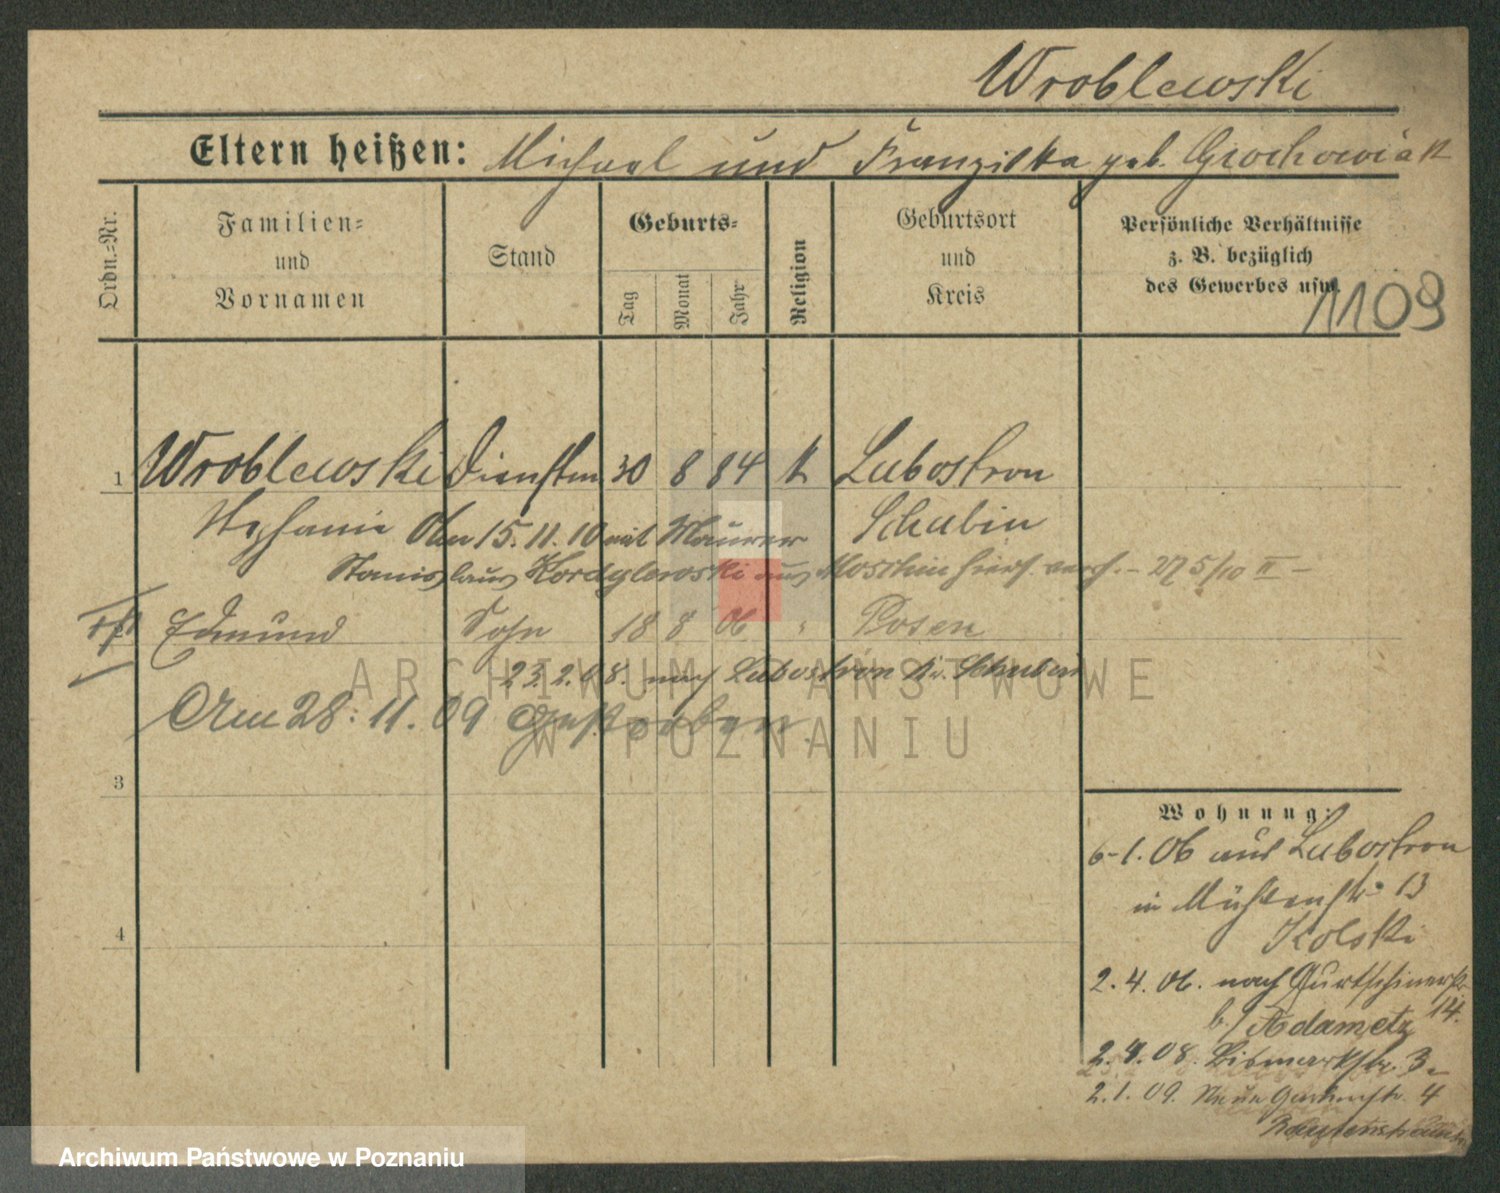 Wroblewski
Eltern heißen: Michael und Franziska geb. Grochowiak
Ordn.-Nr.
Familien-
und
Vornamen
Stand
Geburts-
Tag
Monat
Jahr
Religion
Geburtsort
und
Kreis
Persönliche Verhältnisse
z. B. bezüglich
des Gewerbes usw.
1109
1 Wroblewski Dienstm 30 8 84 k Lubostron
Stephanie Am 15. 11. 10 mit Maurer Schubin
Stanislaus Kordylewski aus Moschin hier - 27 5/10 II -
Edmund Sohn 18 8 06 " Posen
23. 2. 08. nach Lubostron Kr. Schubin
Am 28. 11. 09 gestorben.
3
4
Wohnung:
6-1. 06 aus Lubostron
in Mühlenstr. 13
Kolski
2. 4. 06. nach Gurtschinerstr
14.
b/ Adametz
2. 4. 08. Bismarkstr. 3
2. 1. 09. Neue Gartenstr. 4
ARCHIWUM PAŃSTWOWE
W POZNANIU
Archiwum Państwowe w Poznaniu